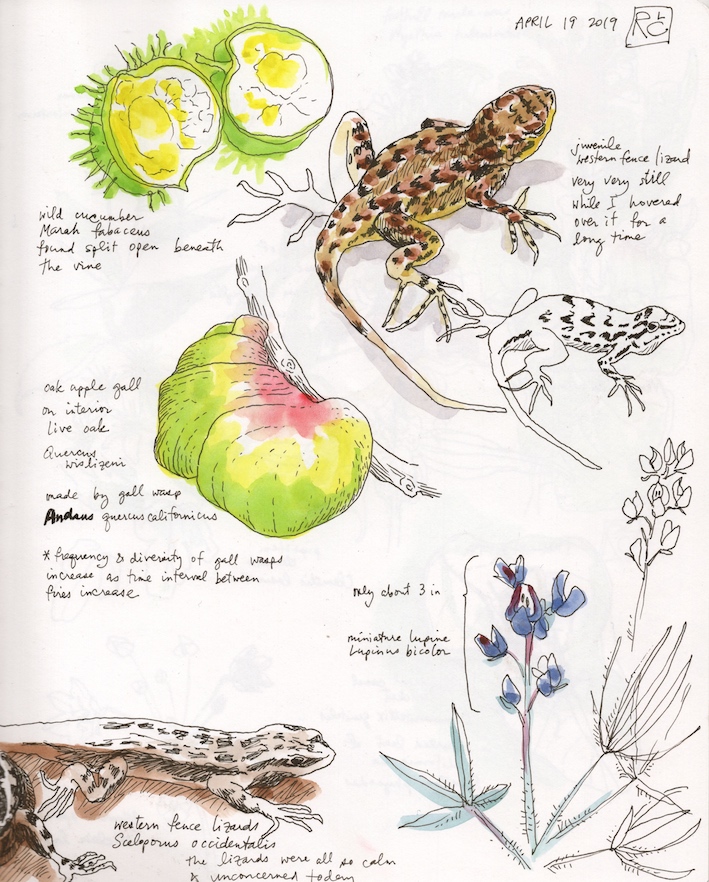 APRIL 19 2019
RLC
wild cucumber
Marah fabaceus
found split open beneath
the vine
juvenile
western fence lizard
very very still
while I hovered
over it for a
long time
oak apple gall
on interior
live oak
Quercus
wislizeni
made by gall wasp
Andrus quercuscalifornicus
* frequency & diversity of gall wasps
increase as time interval between
fires increase
only about 3 in
miniature lupine
Lupinus bicolor
western fence lizards
Sceloporus occidentalis
the lizards were all so calm
& unconcerned today